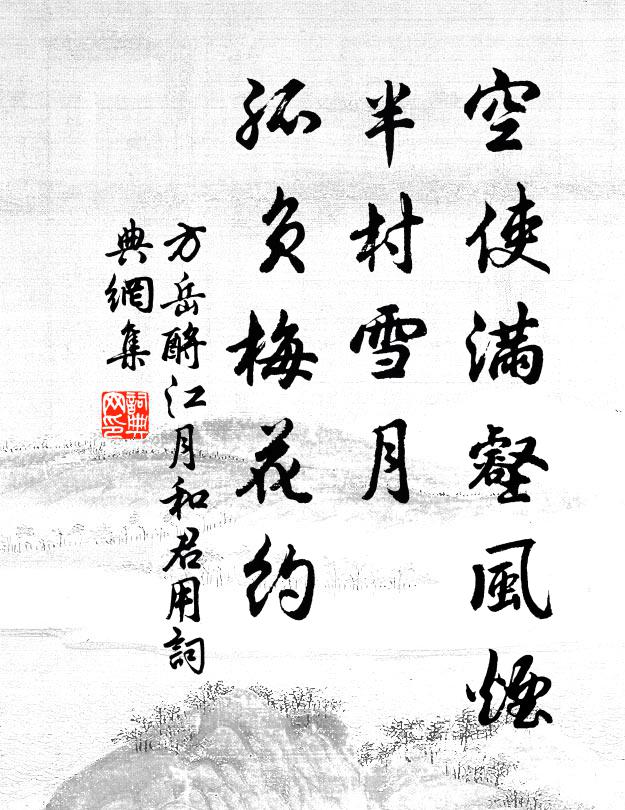 空使滿壑風煙
半村雪月
孤負梅花約
方岳酹江月和君用詞
典網集
詞典網印